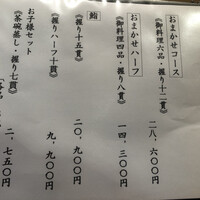 おまかせコース
《御料理六品・握り十二貫》
二八、六〇〇円
おまかせハーフ
《御料理四品・握り八貫》
一四、三〇〇円
鮨
《握り十五貫》
二〇、九〇〇円
《握りハーフ十貫》
九、九〇〇円
お子様セット
《茶碗蒸し・握り七貫》
二、七五〇円